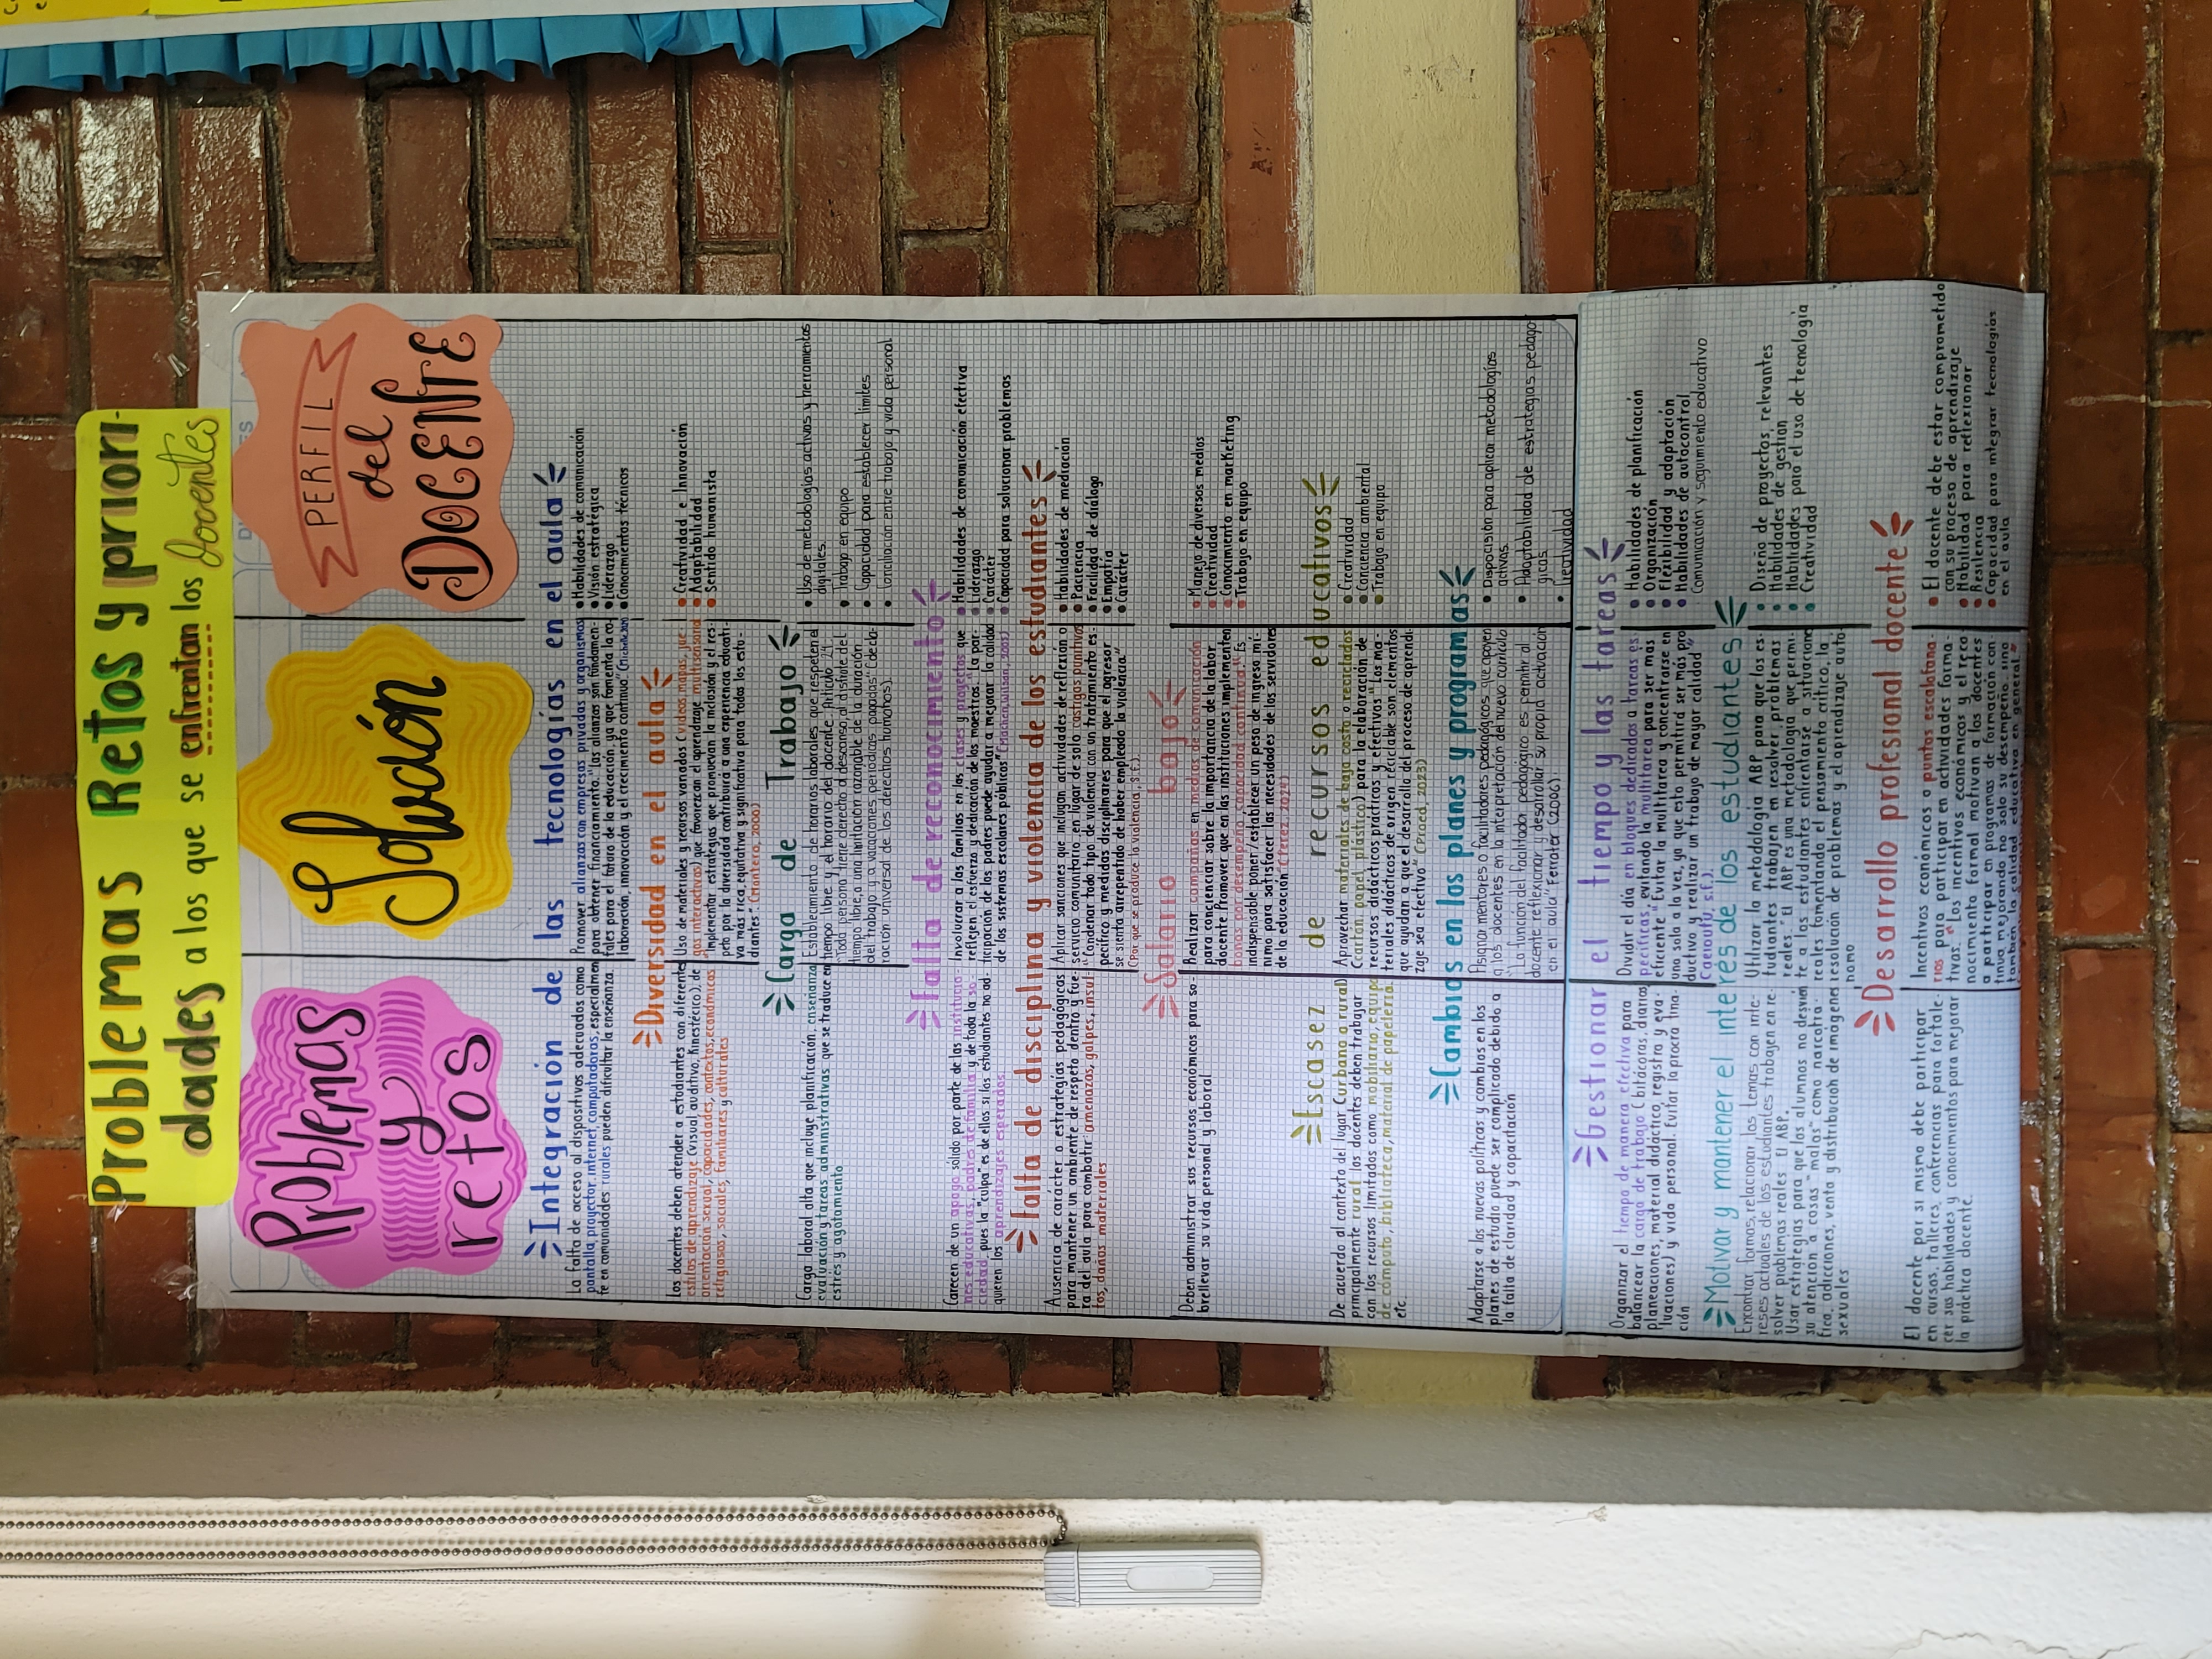 Problemas Retos y priori-
dades a los que se enfrentan los docentes
Problemas
y
retos
Solución
PERFIL
del
DOCENTE
Integración de las tecnologías en el aula
La falta de acceso al dispositivos adecuados como
pantalla, proyector, internet, computadoras, especialmen
te en comunidades rurales pueden dificultar la enseñanza.
Promover alianzas con empresas privadas y organismos
para obtener financiamiento. "Las alianzas son fundamen-
tales para el futuro de la educación, ya que fomenta la co-
laboración, innovación y el crecimiento continuo"
• Habilidades de comunicación
• Visión estratégica
• Liderazgo
• Conocimientos técnicos
Diversidad en el aula
Los docentes deben atender a estudiantes con diferentes
estilos de aprendizaje (visual auditivo, Kinestécico), de
orientación sexual, capacidades, contextos, económicos
religiosos, sociales, familiares y culturales
Uso de materiales y recursos variados (videos, mapas, jue-
gos interactivos) que favorezcan el aprendizaje multisensorial
"Implementar estrategias que promuevan la inclusión y el res-
peto por la diversidad contribuirá a una experiencia educati-
va más rica, equitativa y significativa para todos los estu-
diantes". (Montero, 2000)
• Creatividad e Innovación
• Adaptabilidad
• Sentido humanista
Carga de Trabajo
Carga laboral alta que incluye planificación, enseñanza
evaluación y tareas administrativas que se traduce en
estrés y agotamiento
Establecimiento de horarios laborales que respeten el
tiempo libre y el horario del docente. Artículo 24:
"Toda persona tiene derecho al descanso, al disfrute del
tiempo libre, a una limitación razonable de la duración
del trabajo y a vacaciones periódicas pagadas" (decla-
ración universal de los derechos humanos).
• Uso de metodologías activas y herramientas
digitales.
• Trabajo en equipo
• Capacidad para establecer límites
• Conciliación entre trabajo y vida personal
Falta de reconocimiento
Carecen de un apoyo sólido por parte de las institucio-
nes educativas, padres de familia y de toda la so-
ciedad, pues la "culpa" es de ellos si los estudiantes no ad-
quieren los aprendizajes esperados.
Involucrar a las familias en las clases y proyectos que
reflejen el esfuerzo y dedicación de los maestros. "La par-
ticipación de los padres puede ayudar a mejorar la calidad
de los sistemas escolares públicos" (Machen, Wilson, 2005)
• Habilidades de comunicación efectiva
• Liderazgo
• Carácter
• Capacidad para solucionar problemas
Falta de disciplina y violencia de los estudiantes
Ausencia de carácter o estrategias pedagógicas
para mantener un ambiente de respeto dentro y fue-
ra del aula para combatir: amenazas, golpes, insul-
tos, daños materiales
Aplicar sanciones que incluyan actividades de reflexión o
servicio comunitario en lugar de solo castigos punitivos
"Condenar todo tipo de violencia con un tratamiento es-
pecífico y medidas disciplinares para que el agresor
se sienta arrepentido de haber empleado la violencia"
(Por que se produce la violencia, S.f.).
• Habilidades de mediación
• Paciencia
• Facilidad de diálogo
• Empatía
• Carácter
Salario bajo
Deben administrar sus recursos económicos para so-
brellevar su vida personal y laboral
Realizar campañas en medios de comunicación
para concienciar sobre la importancia de la labor
docente Promover que en las instituciones implementen
bonos por desempeño, capacidad continua." Es
indispensable poner/establecer un peso de ingreso mí-
nimo para satisfacer las necesidades de los servidores
de la educación" (Perez, 2024)
• Manejo de diversos medios
• Creatividad
• Conocimiento en marketing
• Trabajo en equipo
Escasez de recursos educativos
De acuerdo al contexto del lugar (urbano o rural)
principalmente rural los docentes deben trabajar
con los recursos limitados como mobiliario, equipo
de cómputo, biblioteca, material de papelería.
etc.
Aprovechar materiales de bajo costo o reciclados
(cartón, papel, plástico) para la elaboración de
recursos didácticos prácticos y efectivos "Los ma-
teriales didácticos de origen reciclable son elementos
que ayudan a que el desarrollo del proceso de aprendi-
zaje sea efectivo" (Proed, 2023)
• Creatividad
• Conciencia ambiental
• Trabajo en equipo
Cambios en los planes y programas
Adaptarse a las nuevas políticas y cambios en los
planes de estudio puede ser complicado debido a
la falta de claridad y capacitación
Asignar mentores o facilitadores pedagógicos que apoyen
a los docentes en la interpretación del nuevo currículo
"La función del facilitador pedagógico es permitir al
docente reflexionar y desarrollar su propia actuación
en el aula" Ferrater (2006).
• Dispocisión para aplicar metodologías
activas.
• Adaptabilidad de estrategias pedago
gicas
• Creatividad
Gestionar el tiempo y las tareas
Organizar el tiempo de manera efectiva para
balancear la carga de trabajo (bitácoras, diarios
planeaciones, material didáctico, registro y eva-
luaciones) y vida personal. Evitar la procra tina-
ción
Dividir el día en bloques dedicados a tareas es-
pecíficas, evitando la multitarea para ser más
eficiente "Evitar la multitarea y concentrarse en
una sola a la vez, ya que esto permitirá ser más pro
ductivo y realizar un trabajo de mayor calidad"
s.f.).
• Habilidades de planificación
• Organización
• Flexibilidad y adaptación
• Habilidades de autocontrol
Comunicación y seguimiento educativo
Motivar y mantener el interés de los estudiantes
Encontrar formas, relacionar los temas con inte-
reses actuales de los estudiantes trabajen en re-
solver problemas reales El ABP.
Usar estrategias para que los alumnos no desvien
su atención a cosas "malas" como narcotrá-
fico, adicciones, venta y distribución de imágenes
sexuales
Utilizar la metodología ABP para que los es-
tudiantes trabajen en resolver problemas
reales. "El ABP es una metodología que permi-
te a los estudiantes enfrentarse a situaciones
reales fomentando el pensamiento crítico, la
resolución de problemas y el aprendizaje autó
nomo
• Diseño de proyectos, relevantes
• Habilidades de gestión
• Habilidades para el uso de tecnología
• Creatividad
Desarrollo profesional docente
El docente por si mismo debe participar
en cursos, talleres, conferencias para fortale-
cer sus habilidades y conocimientos para mejorar
la práctica docente.
Incentivos económicos o puntos escalafona-
rios para participar en actividades forma-
tivas. "Los incentivos económicos y el reco
nocimiento formal motivan a los docentes
a participar en programas de formación con-
tinua, mejorando no solo su desempeño, sino
también la calidad educativa en general."
• El docente debe estar comprometido
con su proceso de aprendizaje
• Habilidad para reflexionar
• Resilencia
• Capacidad para integrar tecnologías
en el aula